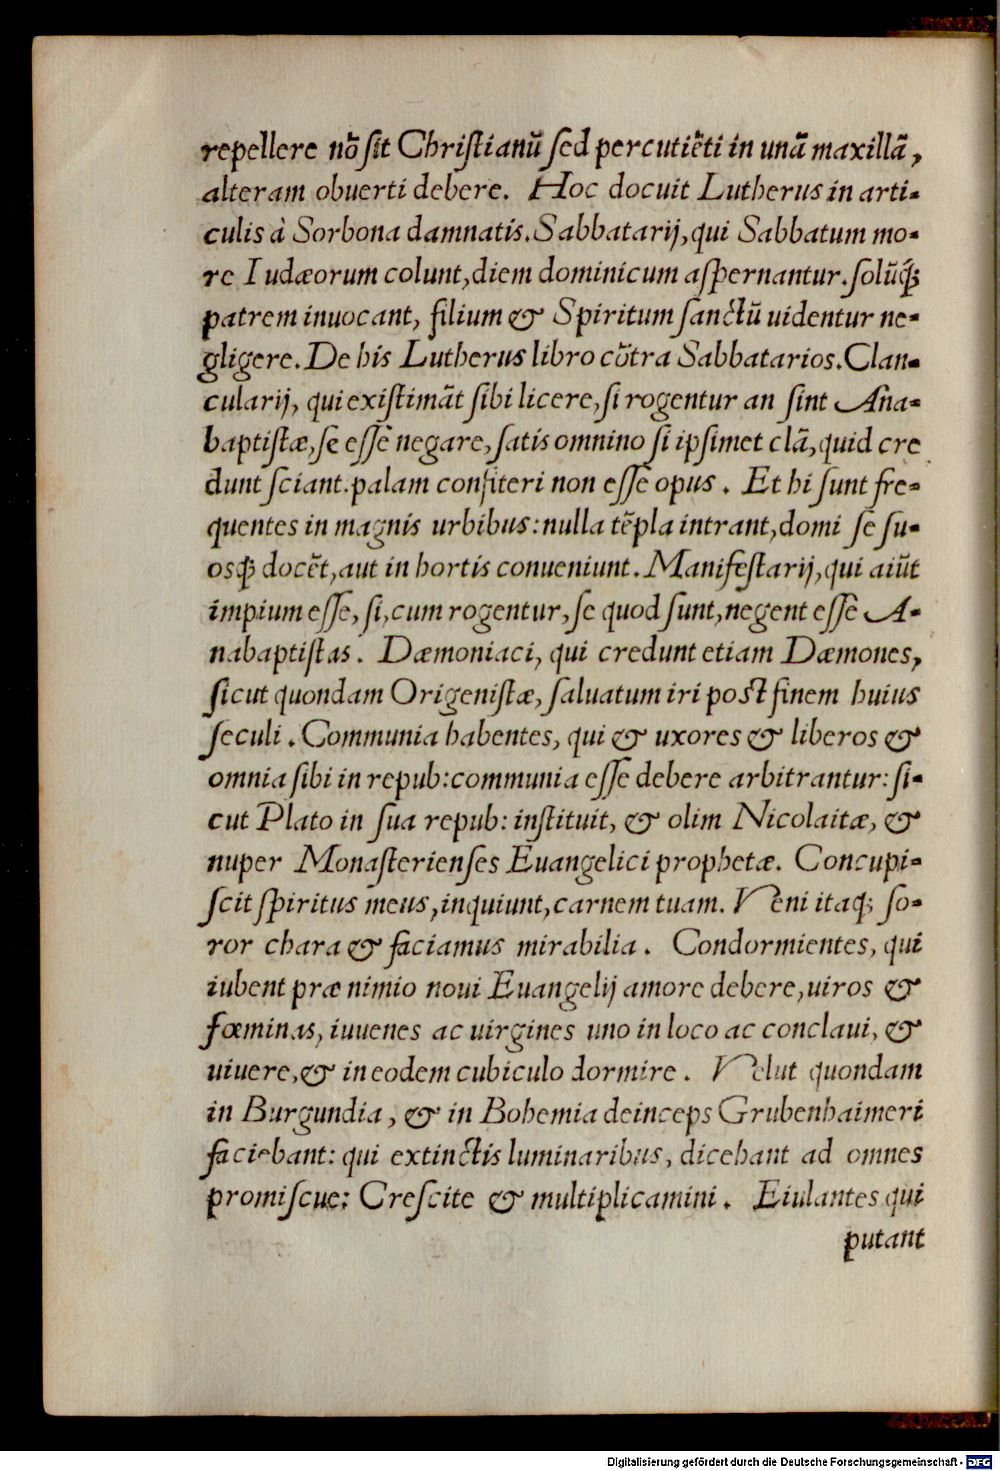 repellere nõ ſit Chriſtianũ ſed percutiẽti in unã maxillã,
alteram obuerti debere. Hoc docuit Lutherus in arti-
culis à Sorbona damnatis. Sabbatarij, qui Sabbatum mo-
re Iudæorum colunt, diem dominicum aſpernantur. ſolũq́;
patrem inuocant, filium & Spiritum ſanctũ uidentur ne-
gligere. De his Lutherus libro cõtra Sabbatarios. Clan-
cularij, qui exiſtimãt ſibi licere, ſi rogentur an ſint Ana-
baptiſtæ, ſe eſſe negare, ſatis omnino ſi ipſimet clã, quid cre
dunt ſciant. palam confiteri non eſſe opus. Et hi ſunt fre-
quentes in magnis urbibus: nulla tẽpla intrant, domi ſe ſu-
osq́; docẽt, aut in hortis conueniunt. Manifeſtarij, qui aiũt
impium eſſe, ſi, cum rogentur, ſe quod ſunt, negent eſſe A-
nabaptiſtas. Dæmoniaci, qui credunt etiam Dæmones,
ſicut quondam Origeniſtæ, ſaluatum iri poſt finem huius
ſeculi. Communia habentes, qui & uxores & liberos &
omnia ſibi in repub: communia eſſe debere arbitrantur: ſi-
cut Plato in ſua repub: inſtituit, & olim Nicolaitæ, &
nuper Monaſterienſes Euangelici prophetæ. Concupi-
ſcit ſpiritus meus, inquiunt, carnem tuam. Veni itaq; ſo-
ror chara & faciamus mirabilia. Condormientes, qui
iubent præ nimio noui Euangelij amore debere, uiros &
fœminas, iuuenes ac uirgines uno in loco ac conclaui, &
uiuere, & in eodem cubiculo dormire. Velut quondam
in Burgundia, & in Bohemia deinceps Grubenhaimeri
faciebant: qui extinctis luminaribus, dicebant ad omnes
promiſcue: Creſcite & multiplicamini. Eiulantes qui
putant
Digitalisierung gefördert durch die Deutsche Forschungsgemeinschaft - DFG